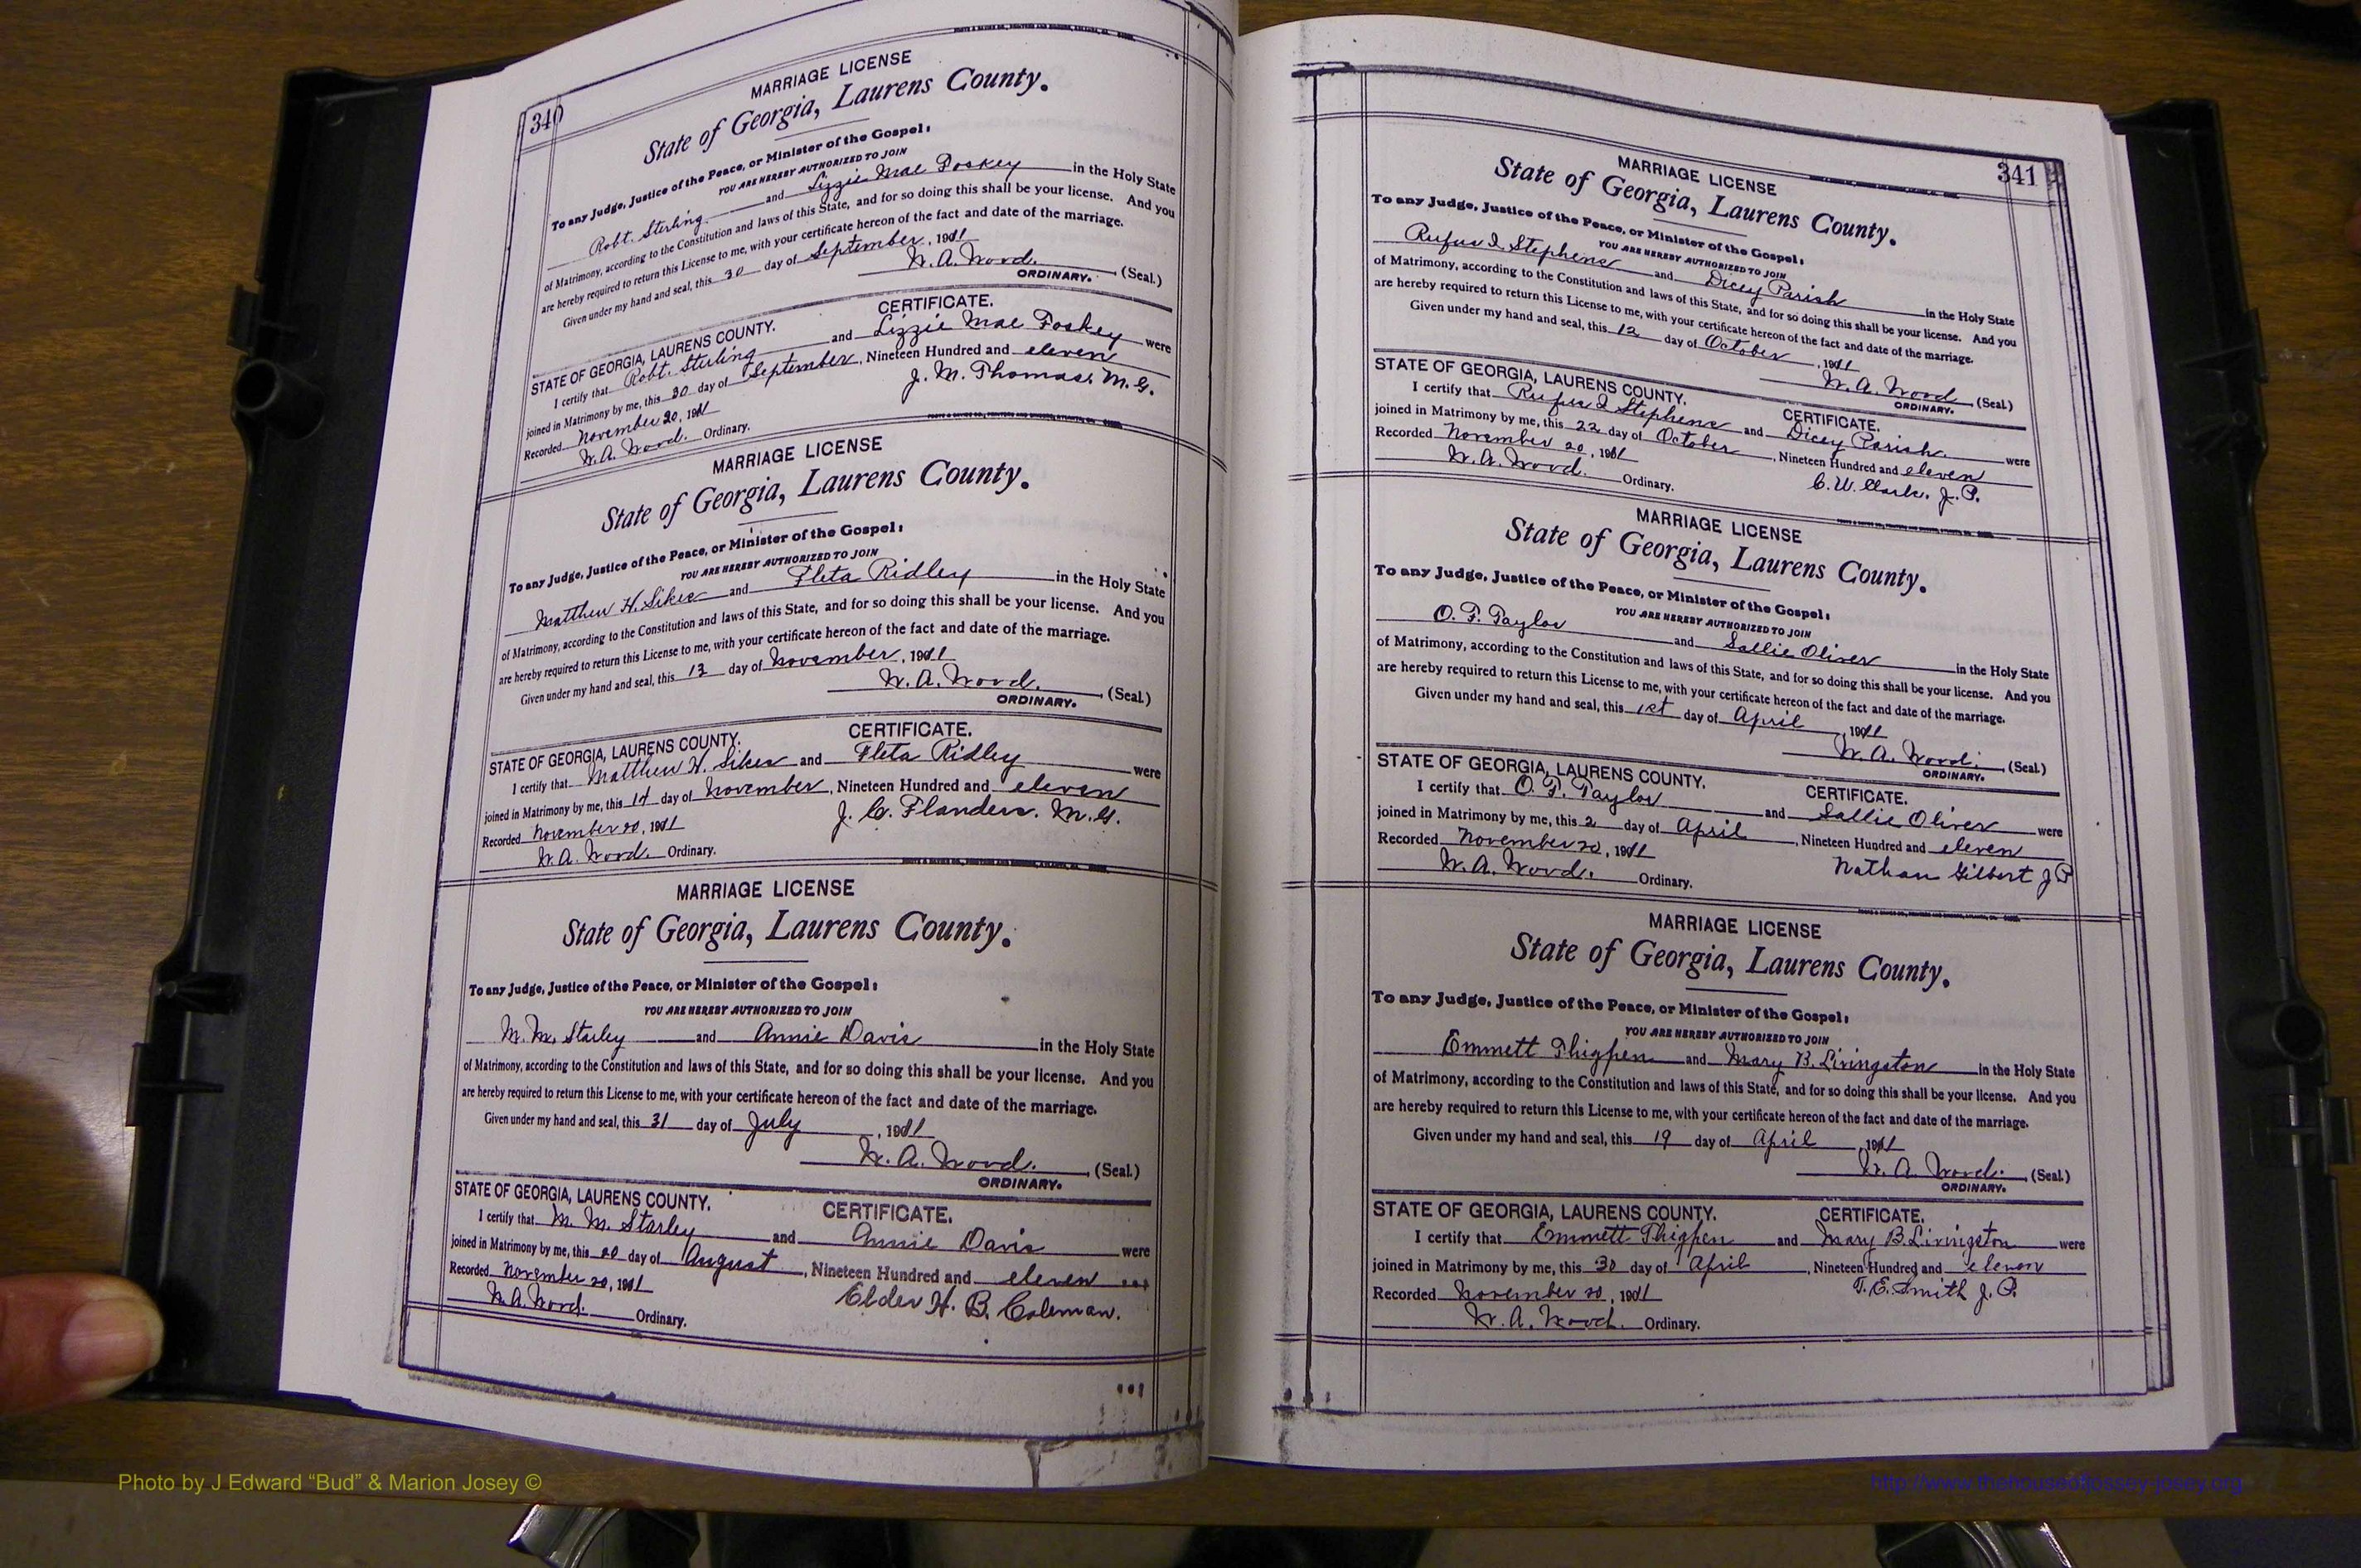 340
MARRIAGE LICENSE
State of Georgia, Laurens County.
To any Judge, Justice of the Peace, or Minister of the Gospel:
YOU ARE HEREBY AUTHORIZED TO JOIN
Robt. Sterling and Lizzie Mae Foskey in the Holy State
of Matrimony, according to the Constitution and laws of this State, and for so doing this shall be your license. And you
are hereby required to return this License to me, with your certificate hereon of the fact and date of the marriage.
Given under my hand and seal, this 30 day of September, 1911
W. A. Wood. (Seal.)
ORDINARY.
CERTIFICATE.
STATE OF GEORGIA, LAURENS COUNTY.
I certify that Robt. Sterling and Lizzie Mae Foskey were
joined in Matrimony by me, this 30 day of September, Nineteen Hundred and eleven
Recorded November 20, 1911 J. M. Thomas. M.G.
W. A. Wood. Ordinary.
MARRIAGE LICENSE
State of Georgia, Laurens County.
To any Judge, Justice of the Peace, or Minister of the Gospel:
YOU ARE HEREBY AUTHORIZED TO JOIN
Matthew H. Sikes and Fleta Ridley in the Holy State
of Matrimony, according to the Constitution and laws of this State, and for so doing this shall be your license. And you
are hereby required to return this License to me, with your certificate hereon of the fact and date of the marriage.
Given under my hand and seal, this day of November, 1911
W. A. Wood. (Seal.)
ORDINARY.
CERTIFICATE.
STATE OF GEORGIA, LAURENS COUNTY.
I certify that Matthew H. Sikes and Fleta Ridley were
joined in Matrimony by me, this 14 day of November, Nineteen Hundred and eleven
Recorded November 20, 1911 J. C. Flanders. M.G.
W. A. Wood. Ordinary.
MARRIAGE LICENSE
State of Georgia, Laurens County.
To any Judge, Justice of the Peace, or Minister of the Gospel:
YOU ARE HEREBY AUTHORIZED TO JOIN
M. M. Starley and Annie Davis in the Holy State
of Matrimony, according to the Constitution and laws of this State, and for so doing this shall be your license. And you
are hereby required to return this License to me, with your certificate hereon of the fact and date of the marriage.
Given under my hand and seal, this 31 day of July, 1911
W. A. Wood. (Seal.)
ORDINARY.
STATE OF GEORGIA, LAURENS COUNTY. CERTIFICATE.
I certify that M. M. Starley and Annie Davis were
joined in Matrimony by me, this day of August, Nineteen Hundred and eleven
Recorded November 20, 1911 Elder H. B. Coleman.
W. A. Wood. Ordinary.
341
MARRIAGE LICENSE
State of Georgia, Laurens County.
To any Judge, Justice of the Peace, or Minister of the Gospel:
YOU ARE HEREBY AUTHORIZED TO JOIN
Rufus I. Stephens and Dicey Parish in the Holy State
of Matrimony, according to the Constitution and laws of this State, and for so doing this shall be your license. And you
are hereby required to return this License to me, with your certificate hereon of the fact and date of the marriage.
Given under my hand and seal, this 12 day of October, 1911
W. A. Wood (Seal.)
ORDINARY.
STATE OF GEORGIA, LAURENS COUNTY. CERTIFICATE.
I certify that Rufus I Stephens and Dicey Parish. were
joined in Matrimony by me, this 22 day of October, Nineteen Hundred and eleven
Recorded November 20, 1911 C. W. Clark. J. P.
W. A. Wood. Ordinary.
MARRIAGE LICENSE
State of Georgia, Laurens County.
To any Judge, Justice of the Peace, or Minister of the Gospel:
YOU ARE HEREBY AUTHORIZED TO JOIN
O. F. Taylor and Sallie Oliver in the Holy State
of Matrimony, according to the Constitution and laws of this State, and for so doing this shall be your license. And you
are hereby required to return this License to me, with your certificate hereon of the fact and date of the marriage.
Given under my hand and seal, this 1st day of April, 1911
W. A. Wood. (Seal.)
ORDINARY.
STATE OF GEORGIA, LAURENS COUNTY. CERTIFICATE.
I certify that O. F. Taylor and Sallie Oliver were
joined in Matrimony by me, this 2 day of April, Nineteen Hundred and eleven
Recorded November 20, 1911 Nathan Gilbert J P
W. A. Wood. Ordinary.
MARRIAGE LICENSE
State of Georgia, Laurens County.
To any Judge, Justice of the Peace, or Minister of the Gospel:
YOU ARE HEREBY AUTHORIZED TO JOIN
Emmett Thigpen and Mary B. Livingston in the Holy State
of Matrimony, according to the Constitution and laws of this State, and for so doing this shall be your license. And you
are hereby required to return this License to me, with your certificate hereon of the fact and date of the marriage.
Given under my hand and seal, this 19 day of April, 1911
W. A. Wood. (Seal.)
ORDINARY.
STATE OF GEORGIA, LAURENS COUNTY. CERTIFICATE.
I certify that Emmett Thigpen and Mary B. Livingston were
joined in Matrimony by me, this 30 day of April, Nineteen Hundred and eleven
Recorded November 20, 1911 T. E. Smith J. P.
W. A. Wood. Ordinary.
Photo by J Edward “Bud” & Marion Josey ©
http://www.thehouseofjossey-josey.org